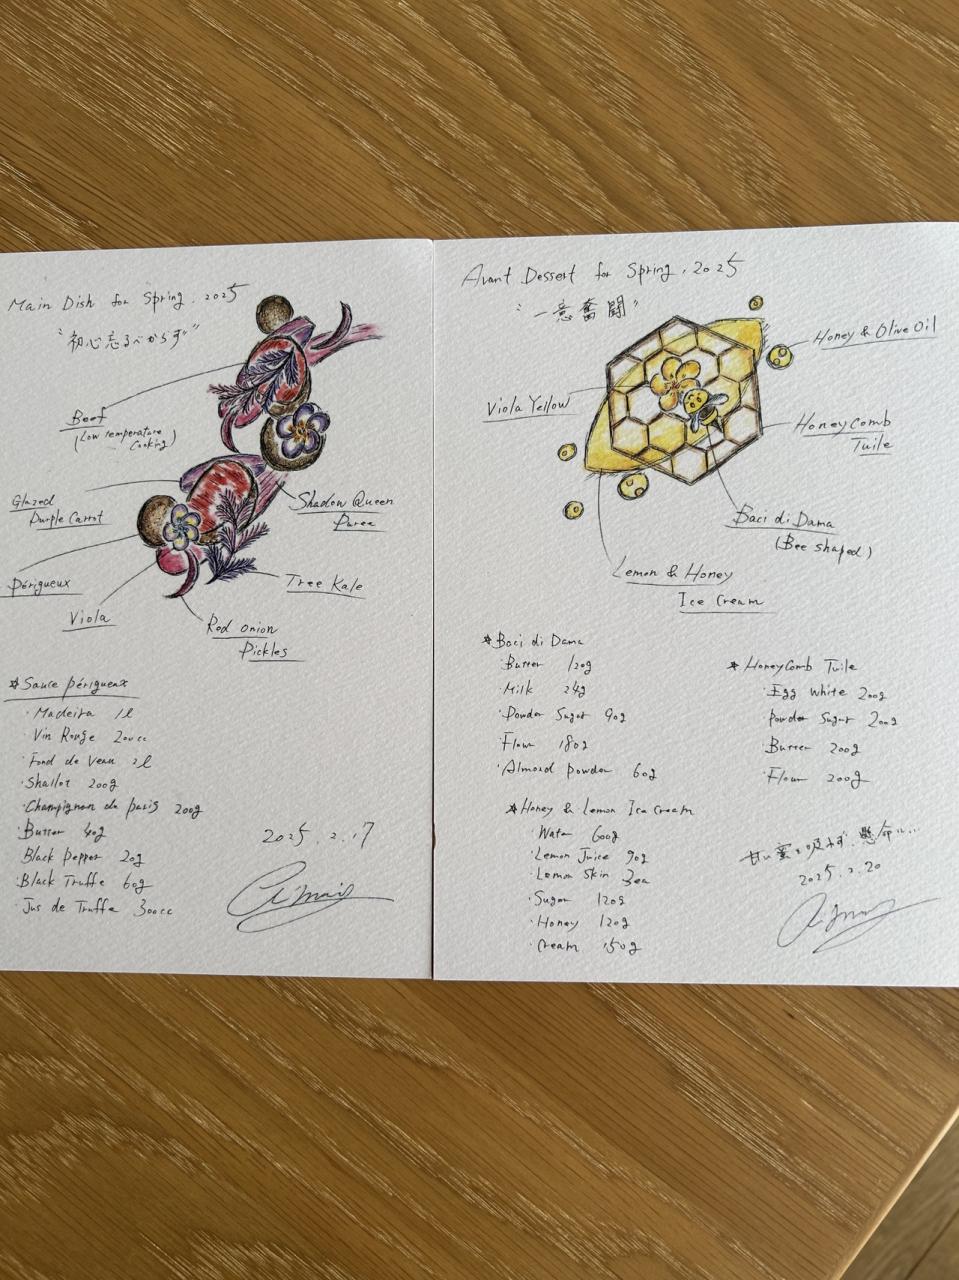 Main Dish for Spring. 2025
"初心忘るべからず"
Beef
(Low temperature
Cooking)
Glazed
Purple Carrot
Shadow Queen
Puree
Périgueux
Tree Kale
Viola
Red onion
Pickles
☆Sauce périgueux
・Madeira 1ℓ
・Vin Rouge 200cc
・Fond de Veau 2ℓ
・Shallot 200g
・Champignon de paris 200g
・Butter 40g
・Black Pepper 20g
・Black Truffe 60g
・Jus de Truffe 300cc
2025. 2. 17
Avant Dessert for Spring. 2025
"一意奮闘"
Honey & Olive Oil
Viola Yellow
Honeycomb
Tuile
Baci di Dama
(Bee shaped)
Lemon & Honey
Ice Cream
★Baci di Dama
・Butter 120g
・Milk 24g
・Powder Sugar 90g
・Flour 180g
・Almond Powder 60g
★HoneyComb Tuile
・Egg White 200g
・Powder Sugar 200g
・Butter 200g
・Flour 200g
★Honey & Lemon Ice Cream
・Water 600g
・Lemon Juice 90g
・Lemon Skin 3ea
・Sugar 120g
・Honey 120g
・Cream 150g
甘い蜜も吸わず、懸命に…
2025. 2. 20